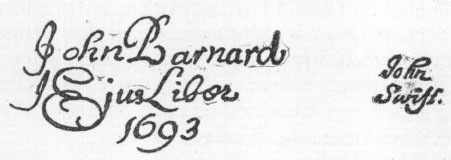 John Barnard
Ejus Liber
1693
John
Swift.